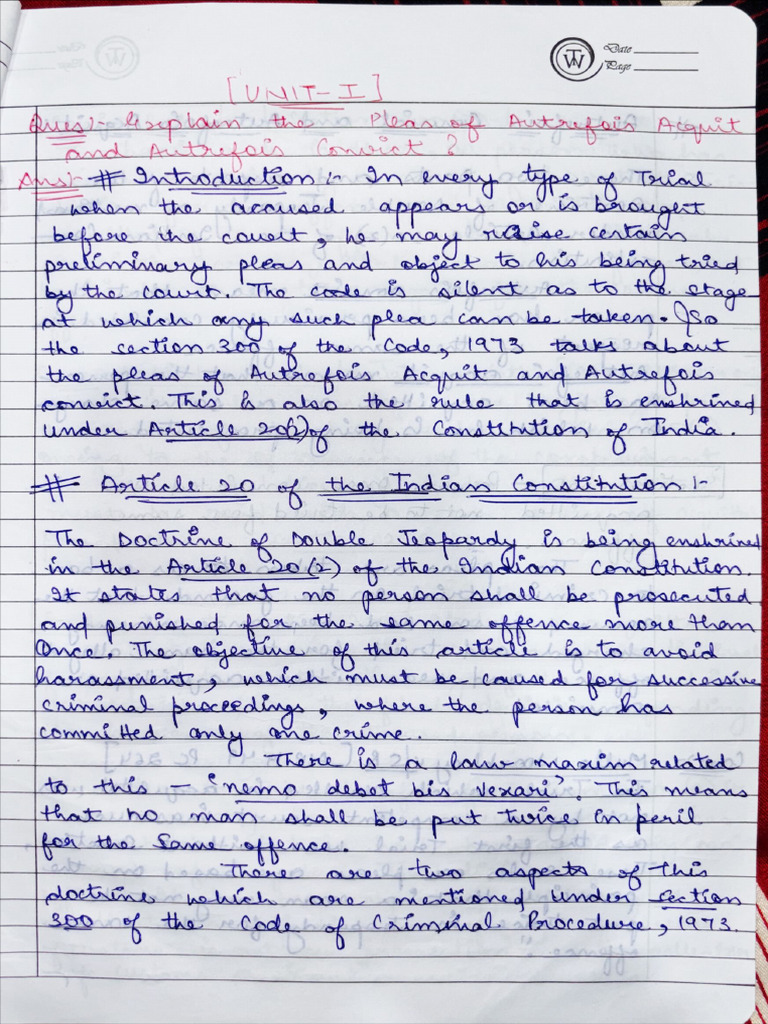 TW
Date
Page
[UNIT-I]
Ques:- Explain the Pleas of Autrefois Acquit
and Autrefois Convict?
Ans:- # Introduction:- In every type of Trial
when the accused appears or is brought
before the court, he may raise certain
preliminary pleas and object to his being tried
by the court. The code is silent as to the stage
at which any such plea can be taken. So
the section 300 of the Code, 1973 talks about
the pleas of Autrefois Acquit and Autrefois
convict. This is also the rule that is enshrined
under Article 20(2) of the Constitution of India.
# Article 20 of the Indian Constitution:-
The Doctrine of Double Jeopardy is being enshrined
in the Article 20(2) of the Indian Constitution.
It states that no person shall be prosecuted
and punished for the same offence more than
Once. The objective of this article is to avoid
harassment, which must be caused for successive
criminal proceedings, where the person has
committed only one crime.
There is a law maxim related
to this - 'nemo debet bis vexari'. This means
that no man shall be put twice in peril
for the same offence.
There are two aspects of this
doctrine which are mentioned under section
300 of the Code of Criminal Procedure, 1973.